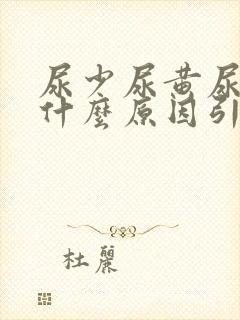 尿少尿黄尿
什麼原因引
杜麗